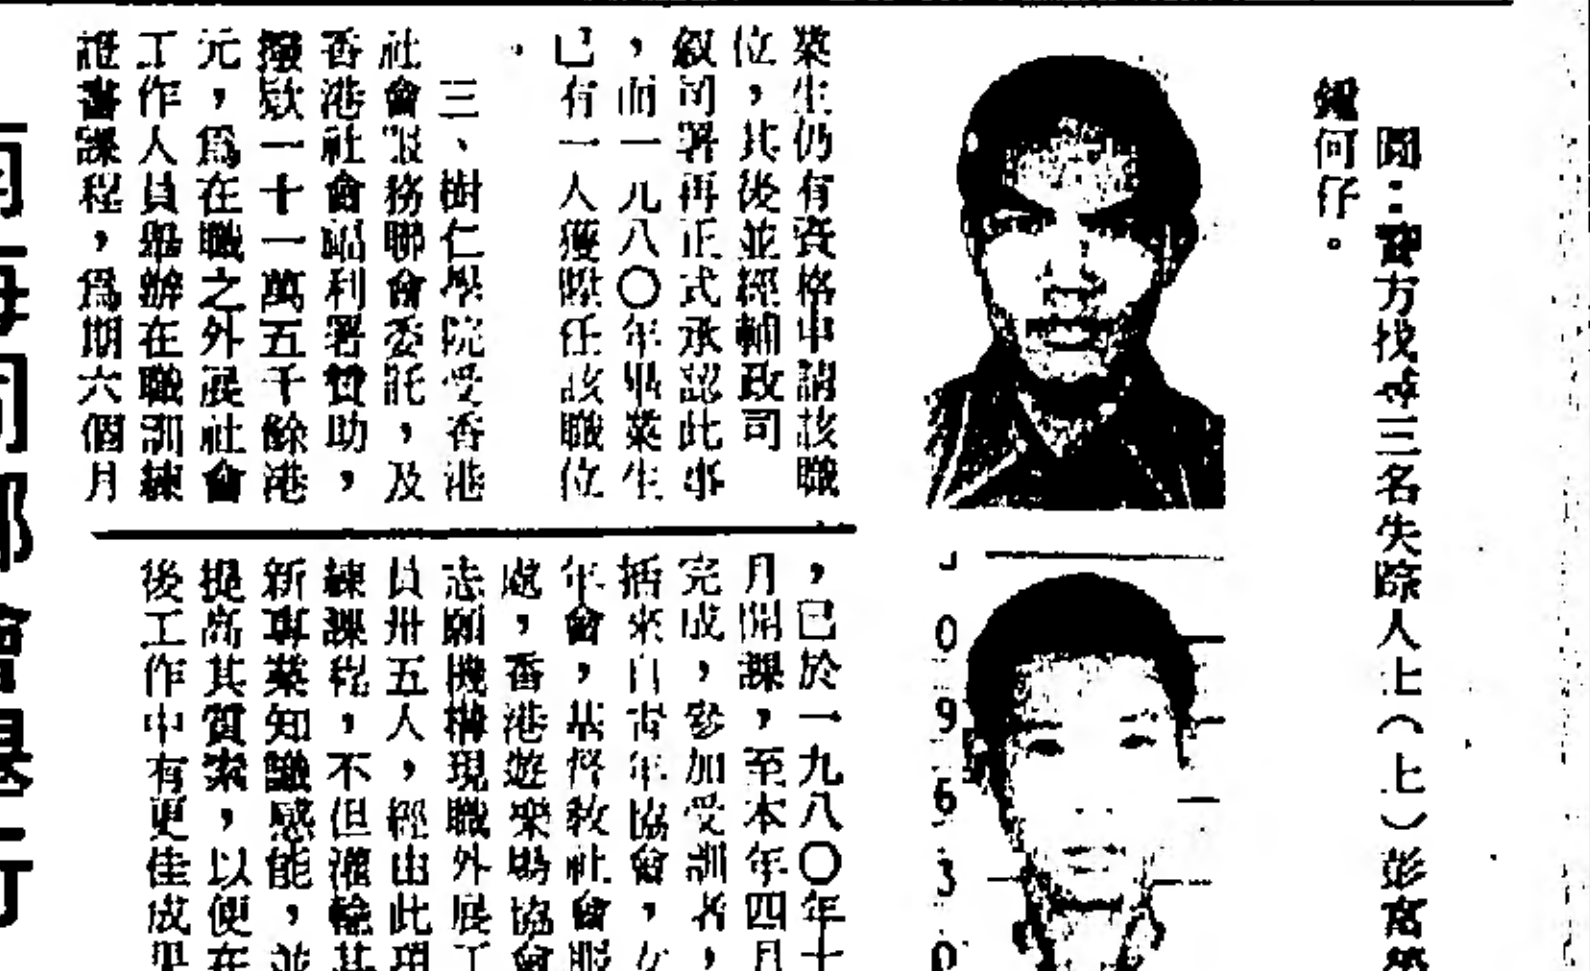 圖：警方找尋三名失踪人士（上）彭富榮
何仔。
業生仍有資格申請該職
位，其後並經輔政司
叙司署再正式承認此事
，而一九八〇年畢業生
已有一人獲陞任該職位
。
三、樹仁學院受香港
社會服務聯會委託，及
香港社會福利署贊助，
撥欵一十一萬五千餘港
元，爲在職之外展社會
工作人員舉辦在職訓練
證書課程，爲期六個月
，已於一九八〇年十
月開課，至本年四月
完成，參加受訓者，
括來自靑年協會，女
年會，基督敎社會服
處，香港遊樂塲協會
志願機構現職外展工
員卅五人，經由此項
練課程，不但灌輸其
新專業知識感能，並
提高其質素，以便在
後工作中有更佳成果
0
9
6
3
0